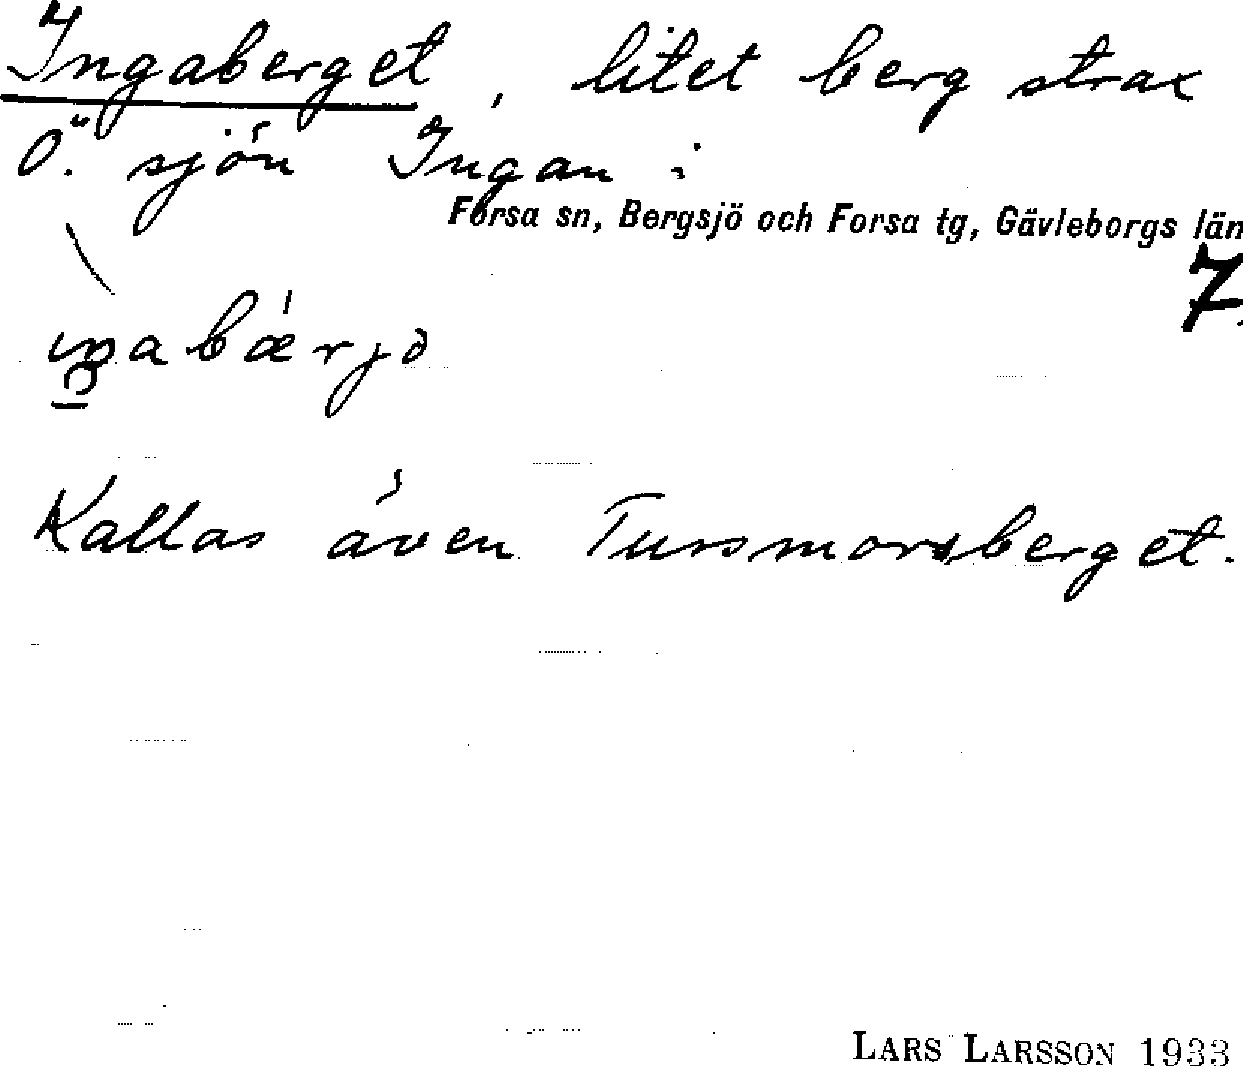 Ingaberget, litet berg strax
Ö. sjön Ingan i
Forsa sn, Bergsjö och Forsa tg, Gävleborgs län
7.
Kallas även Tursmorsberget.
LARS LARSSON 1933